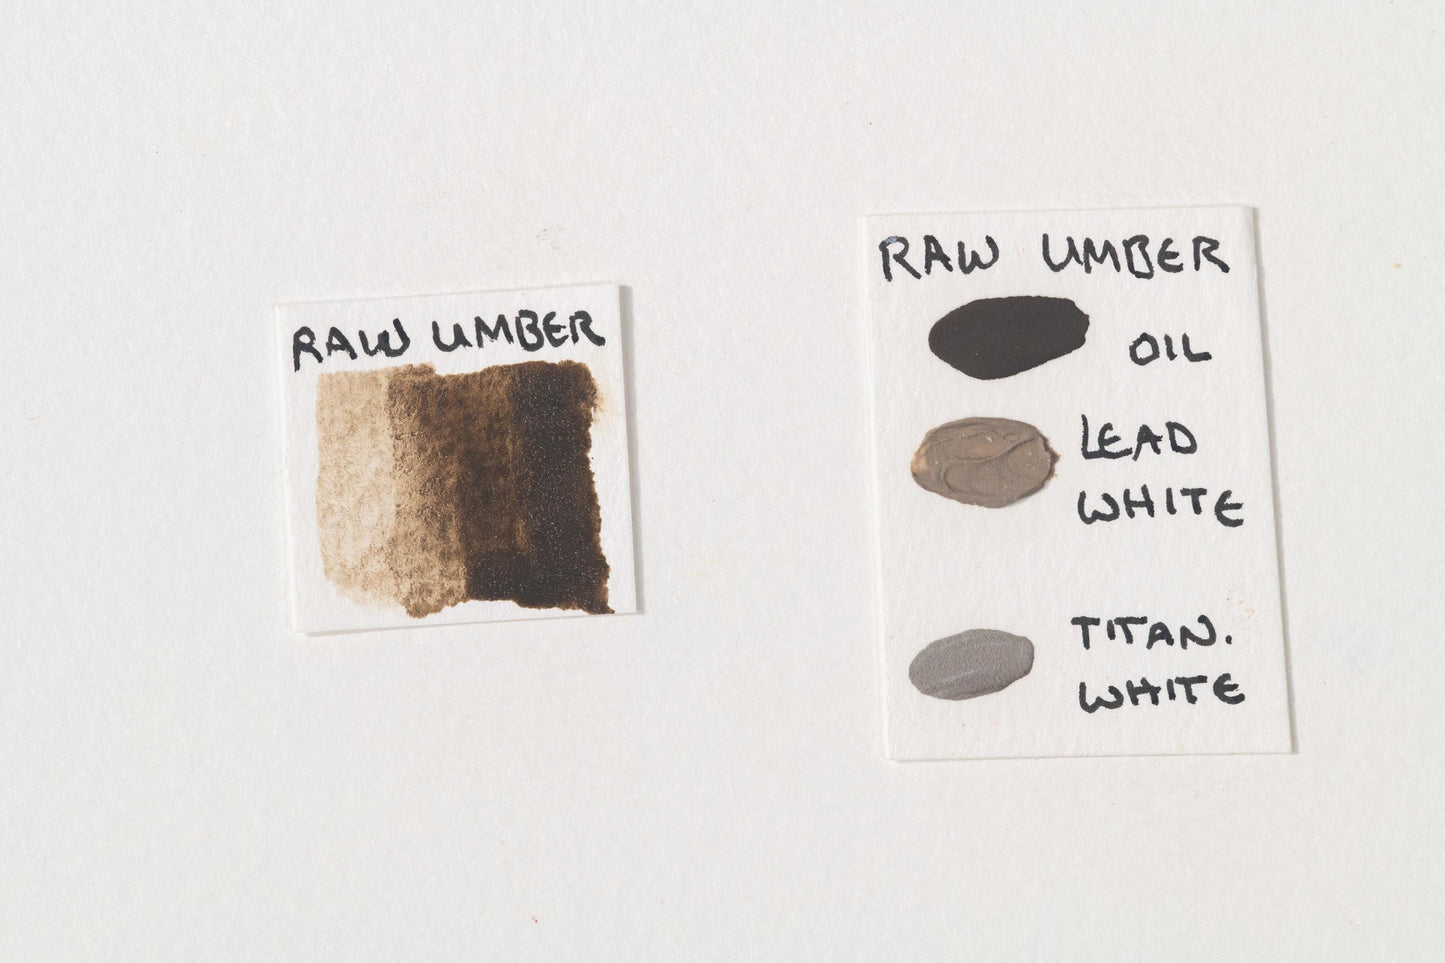 RAW UMBER
RAW UMBER
OIL
LEAD
WHITE
TITAN.
WHITE